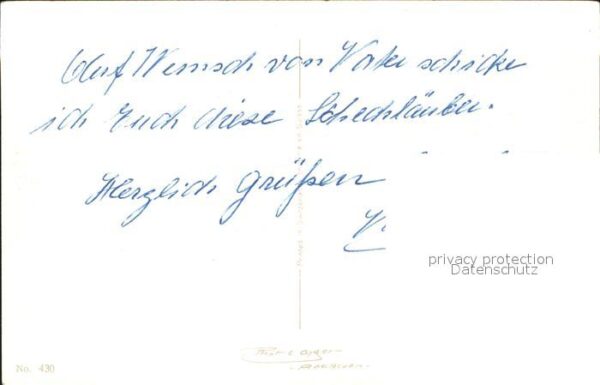 Auf Wunsch von Vater schicke
ich Euch diese
Herzlich Grüßen
V.
privacy protection
Datenschutz
No. 430